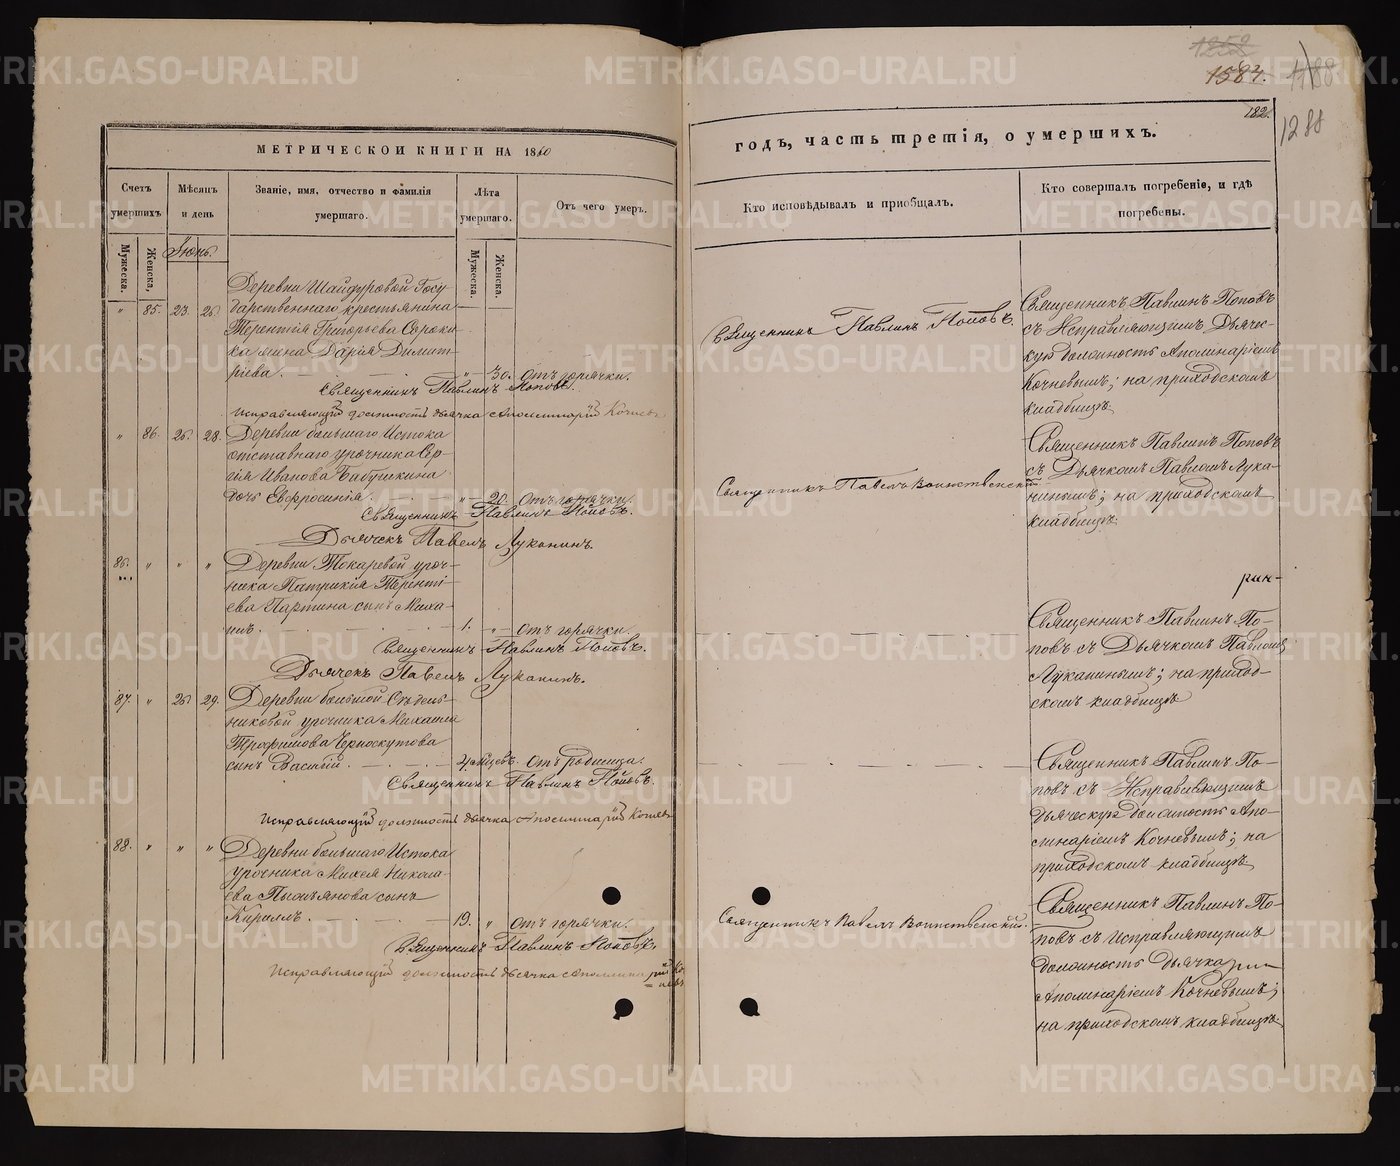 1252
1584.
1188
182.
1288
МЕТРИЧЕСКОЙ КНИГИ НА 1860
годъ, часть третія, о умершихъ.
Счетъ умершихъ
Мѣсяцъ и день
Званіе, имя, отчество и фамилія умершаго.
Лѣта умершаго.
Отъ чего умеръ.
Кто исповѣдывалъ и пріобщалъ.
Кто совершалъ погребеніе, и гдѣ погребены.
Мужеска.
Женска.
Іюнь.
Мужеска.
Женска.
Деревни Шайдуровой Госу-
" 85. 23 25. дарственнаго крестьянина
Терентія Григорьева
Дарія Димит-
ріева. " 30. Отъ горячки.
Священникъ Павлинъ Поповъ.
Исправляющій должность дьячка Аполлинарій Кочневъ
Священникъ Павлинъ Поповъ.
Священникъ Павлинъ Поповъ
съ Исправляющимъ Дьячес-
кую должность Аполинаріемъ
Кочневымъ; на приходскомъ
кладбищѣ
" 86. 26. 28. Деревни большаго Истока
отставнаго урочника Сер-
гія Иванова Бабушкина
дочь Евфросинія. " 20. Отъ горячки.
Священникъ Павлинъ Поповъ.
Дьячекъ Павелъ Луканинъ.
Священникъ Павелъ Воинственскій
Священникъ Павлинъ Поповъ
съ Дьячкомъ Павломъ Лука-
нинымъ; на приходскомъ
кладбищѣ
86. " " " Деревни Токаревой уроч-
ника Патрикія Теренті-
ева Партина сынъ Миха-
илъ. 1. " Отъ горячки.
Священникъ Павлинъ Поповъ.
Дьячекъ Павелъ Луканинъ.
рин-
Священникъ Павлинъ По-
повъ съ Дьячкомъ Павломъ
Луканинымъ; на приход-
скомъ кладбищѣ
87. " 26 29. Деревни большой Седель-
никовой урочника Михаила
Трофимова Черноскутова
сынъ Василій. 4 мѣсяцевъ. Отъ родимца.
Священникъ Павлинъ Поповъ.
Исправляющій должность дьячка Аполлинарій Кочневъ
Священникъ Павлинъ По-
повъ съ Исправляющимъ
Дьяческую должность Апо-
линаріемъ Кочневымъ; на
приходскомъ кладбищѣ
88. " " " Деревни большаго Истока
урочника Михея Никола-
ева сынъ
Кириллъ. 19. " Отъ горячки.
Священникъ Павлинъ Поповъ.
Исправляющій должность дьячка Аполлинарій Ко-
чневъ
Священникъ Павелъ Воинственскій.
Священникъ Павлинъ По-
повъ съ исправляющимъ
должность дьячка
Аполинаріемъ Кочневымъ;
на приходскомъ кладбищѣ
METRIKI.GASO-URAL.RU